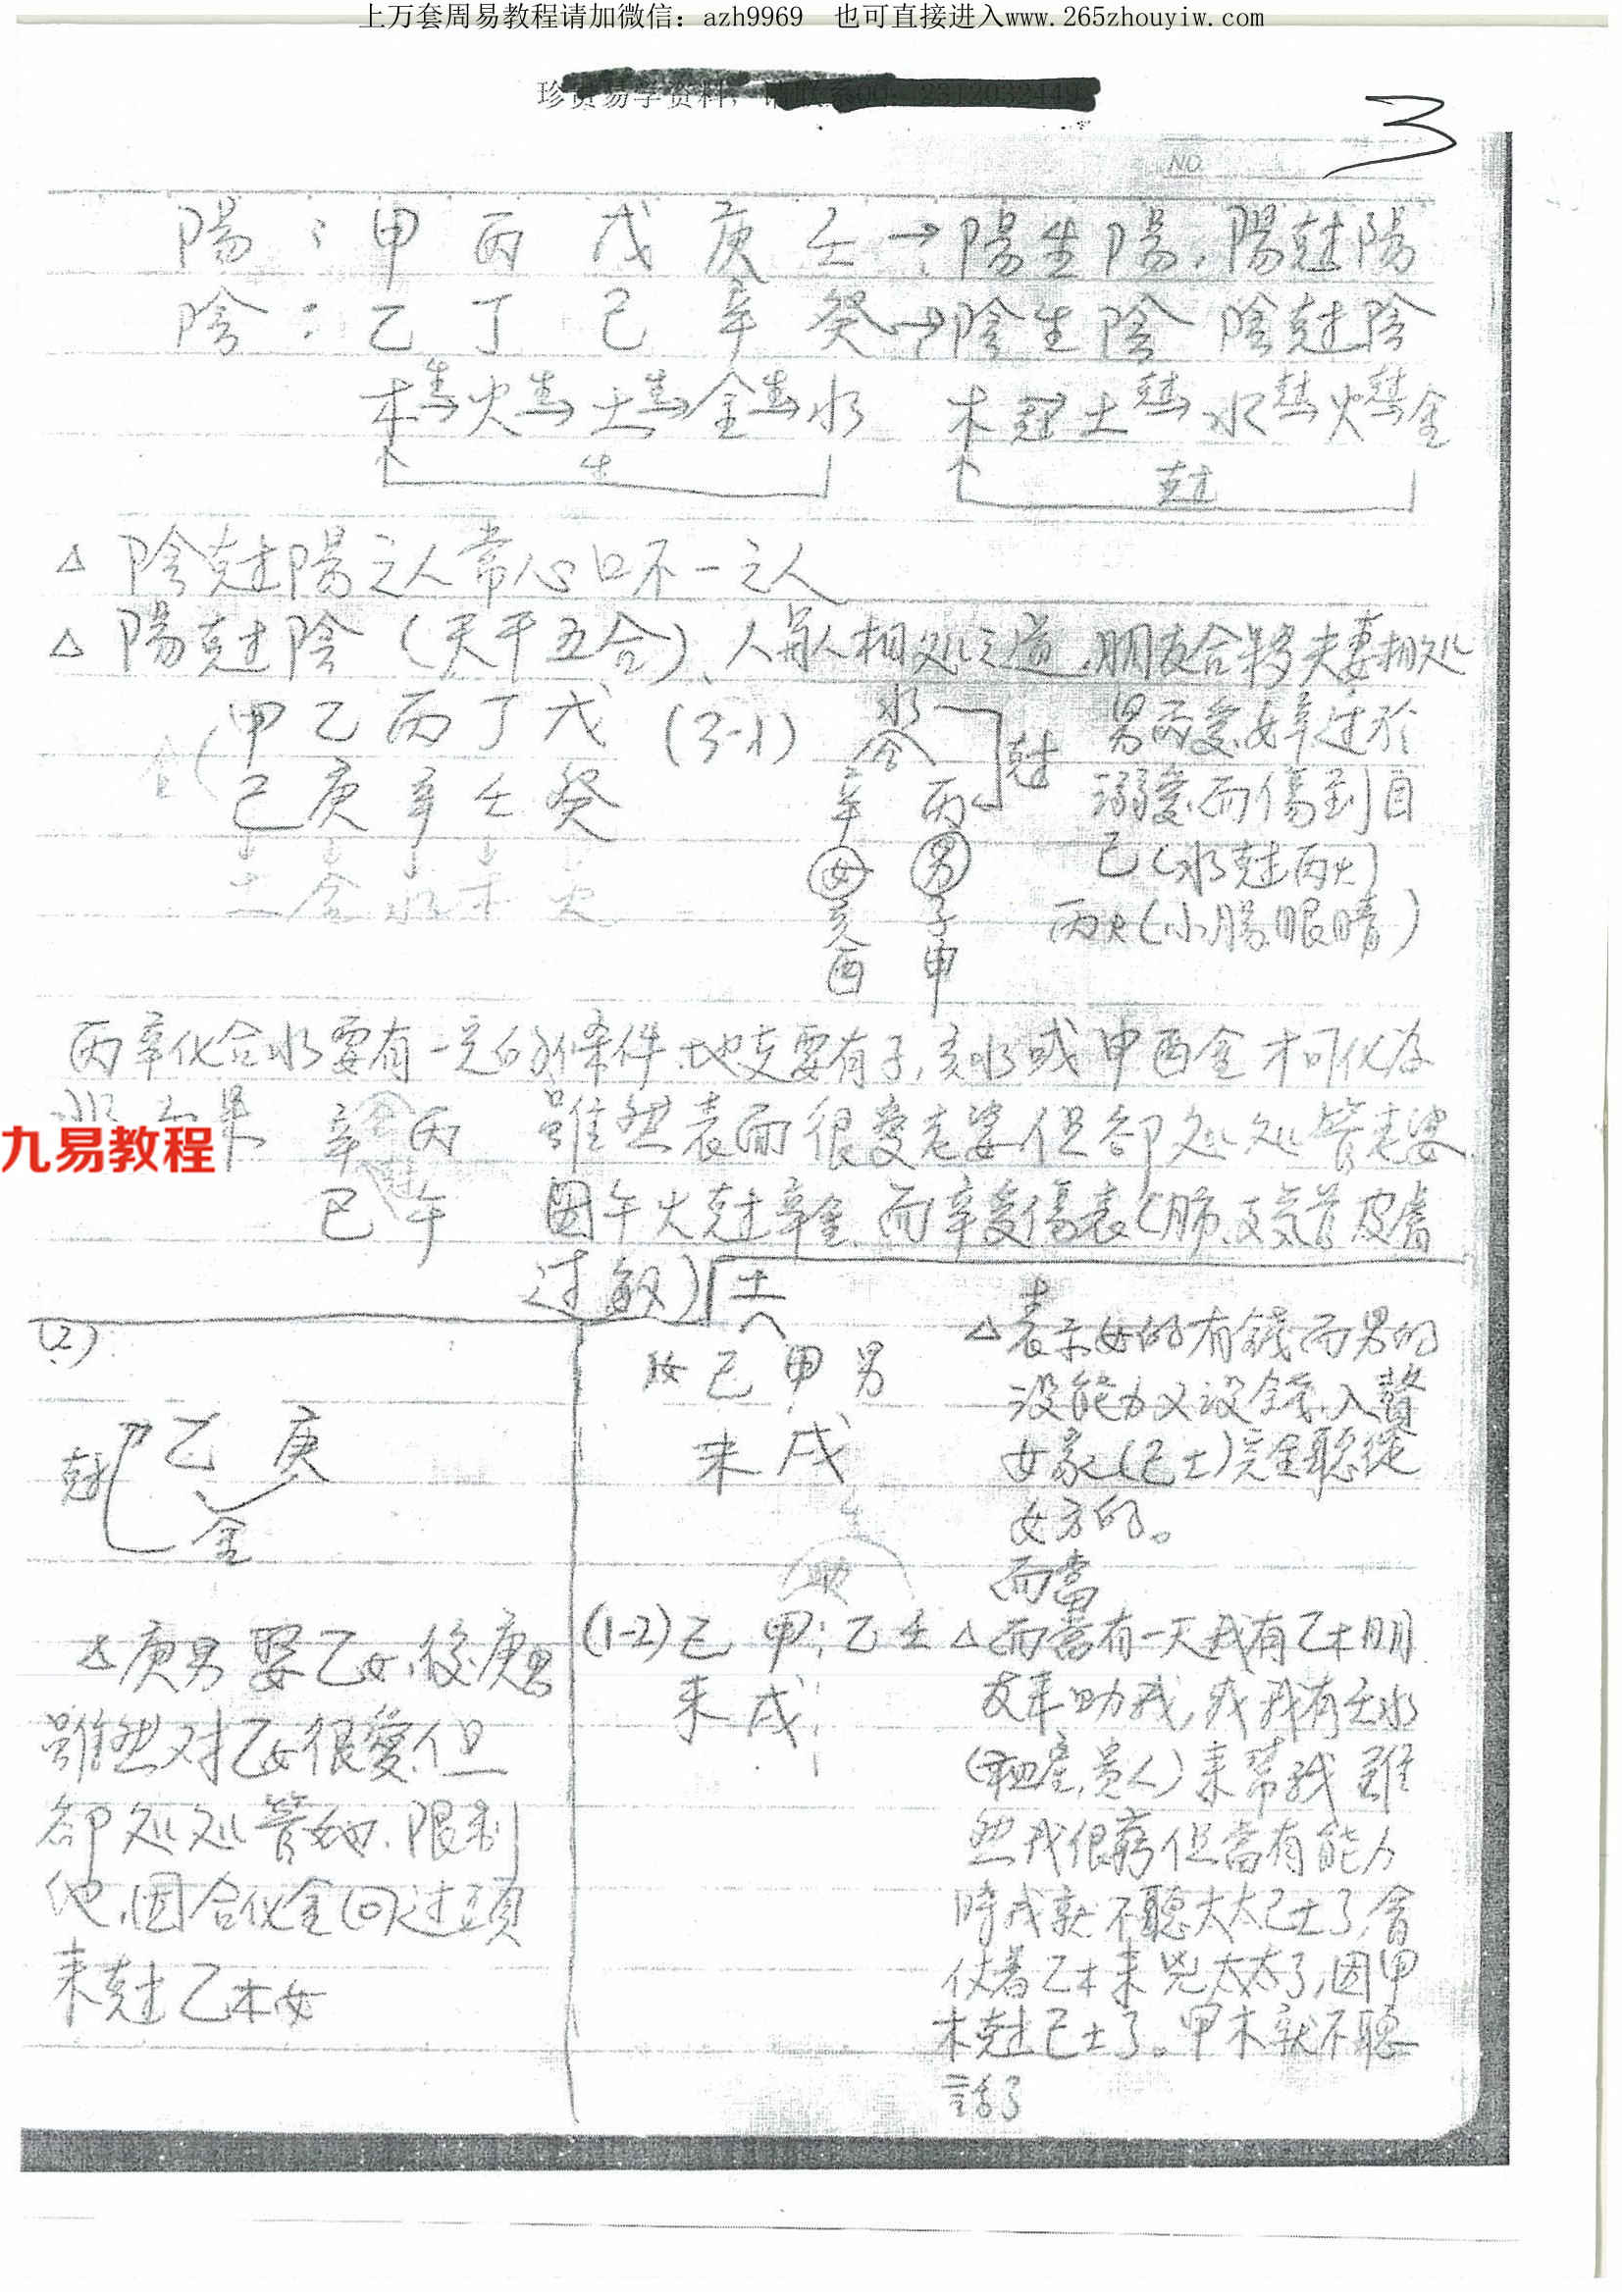 上万套周易教程请加微信：azh9969　也可直接进入www.265zhouyiw.com
珍贵易学资料，
3
NO
陽：甲 丙 戊 庚 壬→陽生陽，陽尅陽
陰：乙 丁 己 辛 癸→陰生陰 陰尅陰
木生火生土生金生水 木尅土尅水尅火尅金
生 尅
△ 陰尅陽之人常心口不一之人
△ 陽尅陰（天干五合）、人與人相処之道，朋友合夥夫妻相処
合（甲 乙 丙 丁 戊 (3-1) 水 男丙愛女辛过於
己 庚 辛 壬 癸 合 尅 溺愛而傷到自
辛 丙 己（水尅丙火）
土 金 水 木 火 女 男 丙火（小腸眼睛）
亥 子
酉 申
丙辛化合水要有一定的條件，地支要有子，亥水或申酉金才可化為
水 果 辛 丙 雖然表面很愛老婆但卻処処管老婆
九易教程
巳 午 因午火尅辛金，而辛受傷表（肺、支氣管皮膚
过敏） 土
(2) 女 己 甲 男 △表示女的有錢而男的
未 戌 没能力又没錢，入贅
尅 乙 庚 女家（己土）完全聽從
金 女方的。
而當
(1-2) 己 甲；乙 壬 △而當有一天我有乙木朋
未 戌 友來助我，或我有壬水
（祖產，貴人）來幫我 雖
然我很窮但當有能力
時我就不聽太太己土了，會
仗着乙木來兇太太了，因甲
木尅己土了。甲木就不聽
話了
△庚男娶乙女，後庚男
雖然对乙女很愛，但
卻処処管她，限制
他，因合化金回过頭
來尅乙木女